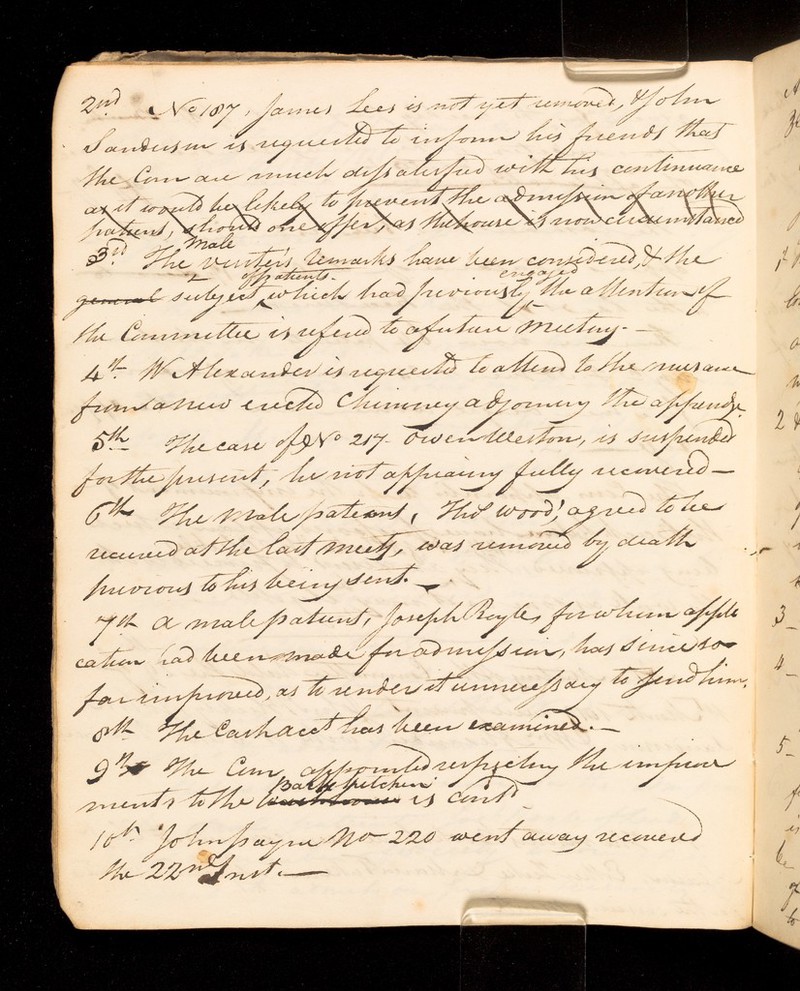 2nd. No 187, James Lees is not yet removed, & John
Sanderson is requested to inform his friends that
the Com are much dissatisfied with his continuance
as it would be likely to prevent the admission of another
patient, should one offer, as the house is now circumstanced
Male
3rd. The visiter's remarks have been considered, & the
of patients. engaged
general subject, which had previously the attention of
the Committee is refered to a future meeting. —
4th. W Alexander is requested to attend to the nusance
from a new erected Chimney adjoining the appendge.
5th The case of No 217. Owen Weston, is suspended
for the present, he not appearing fully recovered —
6th The Male patient, Thos Wood, agreed to be
received at the last meetg, was removed by death
previous to his being sent. —
7th A male patient, Joseph Royle, for whom appli
cation had been made for admission, has since so
far improved, as to render it unnecessary to send him.
8th The Cash acct has been examined. —
9th The Com appointed respecting the improve
Back kitchen
ments to the is contd
10th John Payne No 220 went away recovered
the 22nd Inst. —